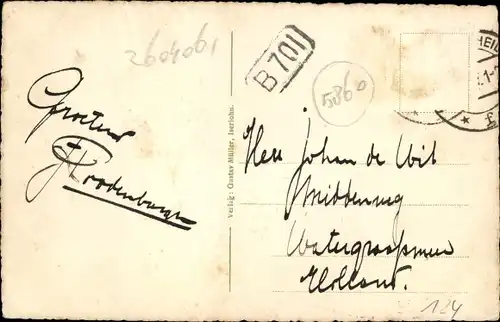 2604061
B 701
5360
HEID
Groeten
J Roodenburgh
Verlag: Gustav Müller, Iserlohn.
Herr Johan de Wit
Middenweg
Watergraafsmeer
Holland.
124